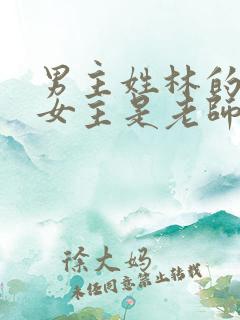 男主姓林的
女主是老師
徐大妈
未经同意禁止转载